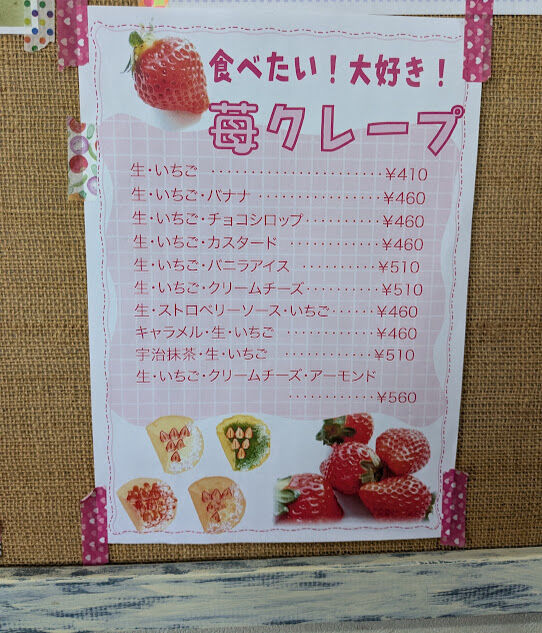 食べたい！大好き！
苺クレープ
生・いちご ・・・・・・・・・・・・・・・・・・・・・・¥410
生・いちご・バナナ ・・・・・・・・・・・・・・・・¥460
生・いちご・チョコシロップ・・・・・・・・・・¥460
生・いちご・カスタード ・・・・・・・・・・・・¥460
生・いちご・バニラアイス ・・・・・・・・・・¥510
生・いちご・クリームチーズ・・・・・・・・・¥510
生・ストロベリーソース・いちご・・・・・・¥460
キャラメル・生・いちご ・・・・・・・・・・・¥460
宇治抹茶・生・いちご ・・・・・・・・・・・・¥510
生・いちご・クリームチーズ・アーモンド
・・・・・・・・・・・・¥560